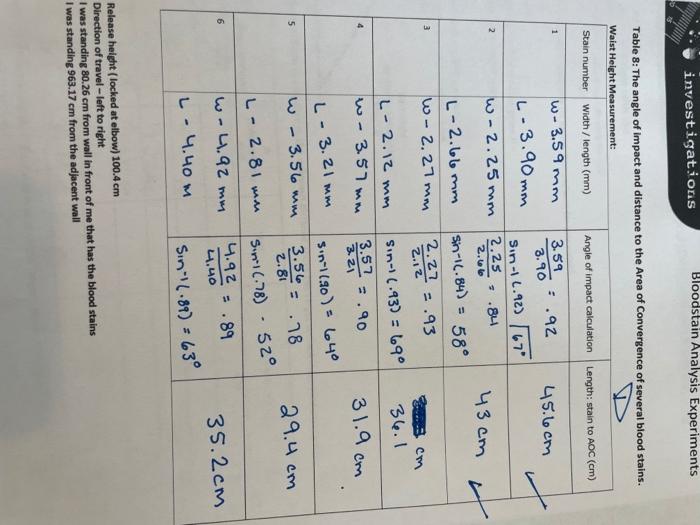 investigations
Bloodstain Analysis Experiments
Table 8: The angle of impact and distance to the Area of Convergence of several blood stains.
Waist Height Measurement:
Stain number Width / length (mm) Angle of impact calculation Length: stain to AOC (cm)
1
W - 3.59 mm
L - 3.90 mm
3.59
3.90 = .92
sin-1 (.92) 67°
45.6 cm
2
W - 2.25 mm
L - 2.66 mm
2.25
2.66 = .84
sin-1 (.84) = 58°
43 cm
3
W - 2.27 mm
L - 2.12 mm
2.27
2.12 = .93
sin-1 (.93) = 69°
cm
36.1
4
W - 3.57 mm
L - 3.21 mm
3.57
3.21 = .90
sin-1 (.90) = 64°
31.9 cm
5
W - 3.56 mm
L - 2.81 mm
3.56
2.81 = .78
sin-1 (.78) - 52°
29.4 cm
6
W - 4.92 mm
L - 4.40 m
4.92
4.40 = .89
sin-1 (.89) = 63°
35.2 cm
Release height (locked at elbow) 100.4 cm
Direction of travel – left to right
I was standing 80.26 cm from wall in front of me that has the blood stains
I was standing 963.17 cm from the adjacent wall